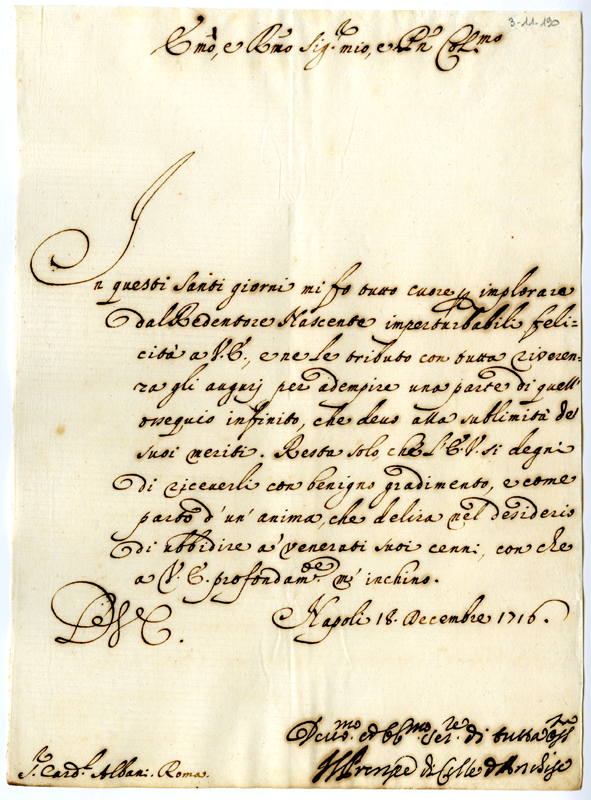 3-11-190
Emo, e Rmo Sigr. mio, e Pne Colmo
In questi Santi giorni mi fo tutto cuore p implorare
dal Redentore Nascente imperturbabili feli=
cità a V.E., e ne le tributo con tutta riveren=
za gli augurj per adempire una parte di quell'
ossequio infinito, che devo alla sublimità de'
suoi meriti. Resta solo che l'E.V. si degni
di riceverli con benigno gradimento, e come
parto d'un'anima, che delira nel desiderio
di ubbidire a' venerati suoi cenni, con che
a V.E. profondamte. m'inchino.
Napoli 18. Decembre 1716.
D V E.
Devmo. ed Obmo. serre. di tutta
Il Prenpe di Colle d'Anchise
Sr. Cardl. Albani. Roma.